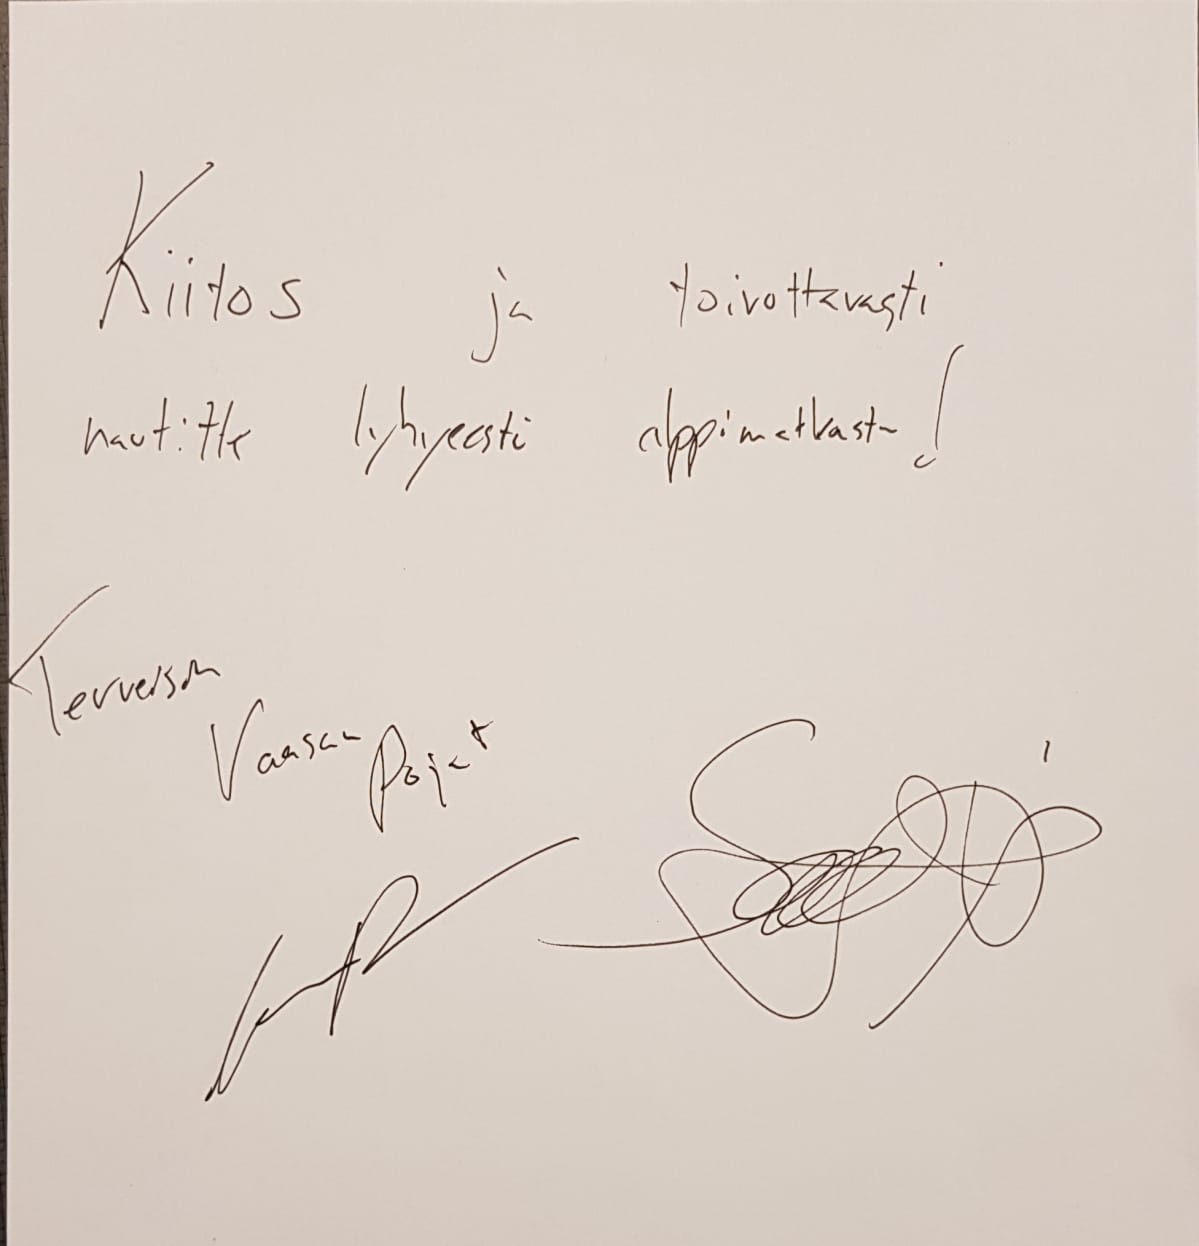 Kiitos ja toivottavasti
nautitte lyhyeesti alppimatkasta!
Terveisin
Vaasan Pojat